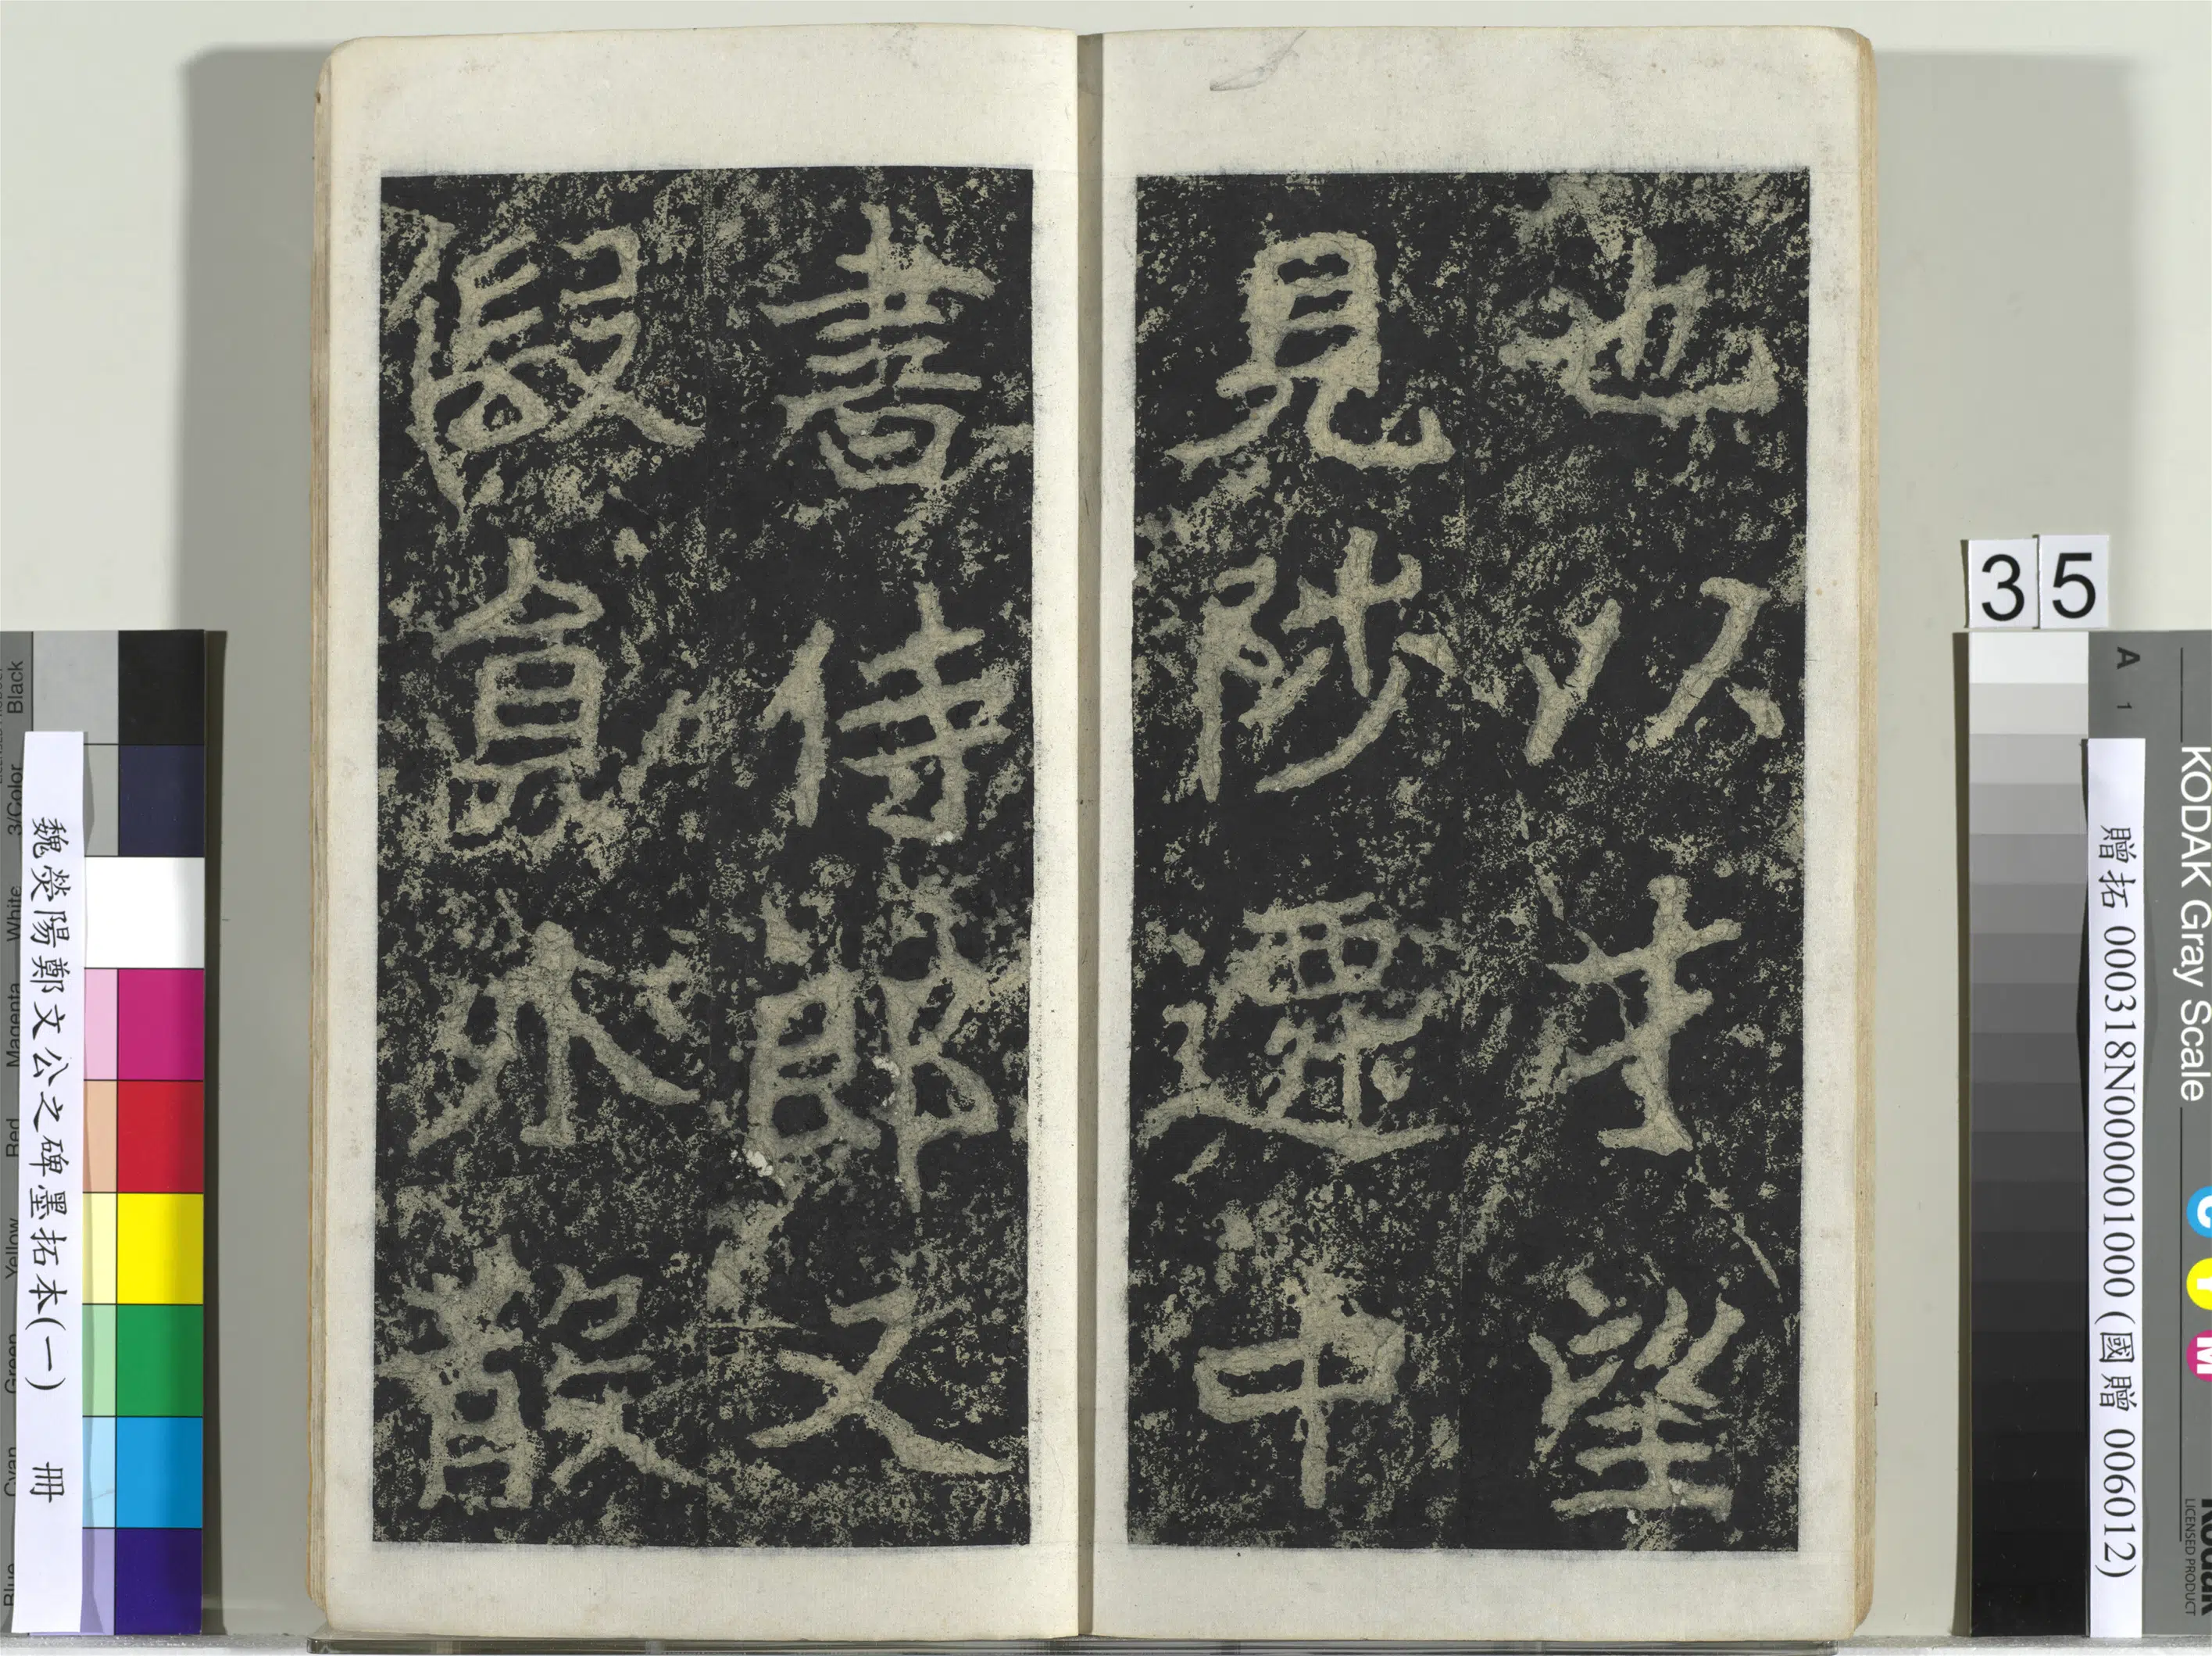 也以才望
見陟遷中
書侍郎又
假員外散
35
贈拓 000318N000001000 (國贈 006012)
魏熒陽鄭文公之碑墨拓本(一) 冊
KODAK Gray Scale
A 1
C Y M
Kodak
LICENSED PRODUCT
Black
3/Color
White
Magenta
Red
Yellow
Green
Cyan
Blue